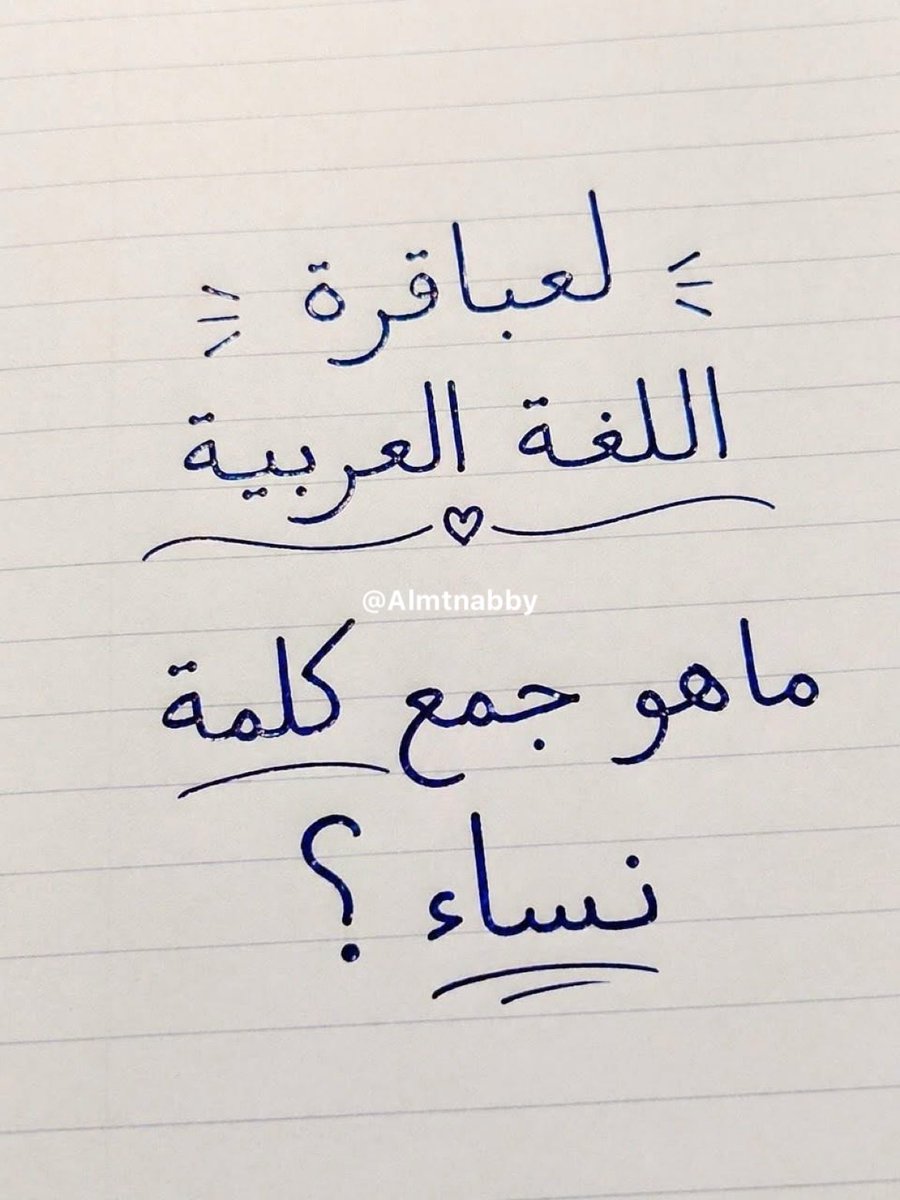 لعباقرة
اللغة العربية
@Almtnabby
ماهو جمع كلمة
نساء ؟